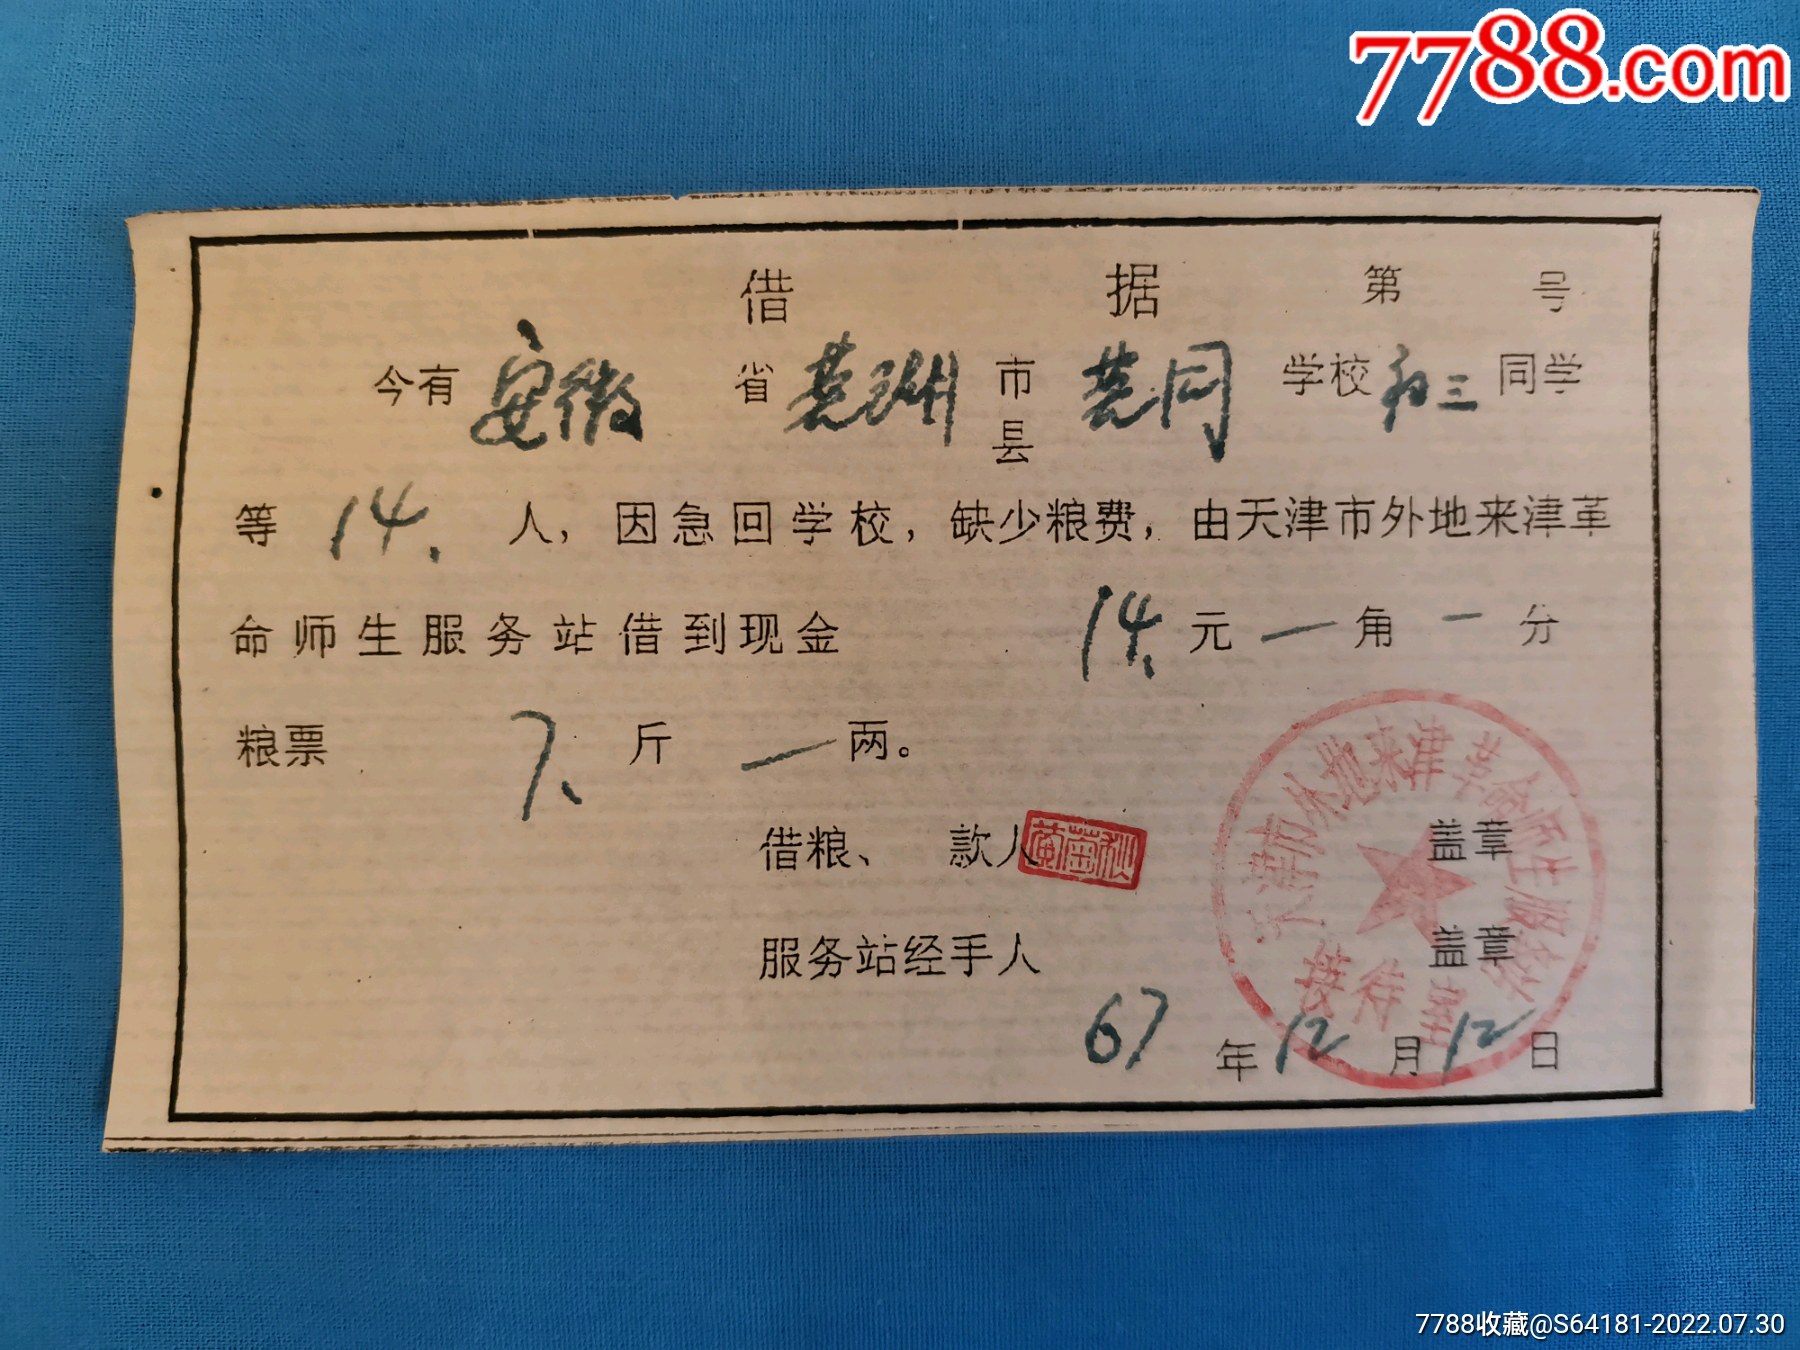 7788.com
借 据 第 号
今有 安徽 省 芜湖 市县 芜同 学校 初三 同学
等 14. 人，因急回学校，缺少粮费，由天津市外地来津革
命师生服务站借到现金 14. 元 一 角 一 分
粮票 7. 斤 一 两。
借粮、 款人 盖章
服务站经手人 盖章
67 年 12 月 12 日
天津市外地来津革命师生服务站
接待
7788收藏@S64181-2022.07.30